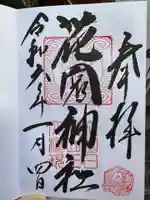 奉拝
花園神社
令和六年一月四日